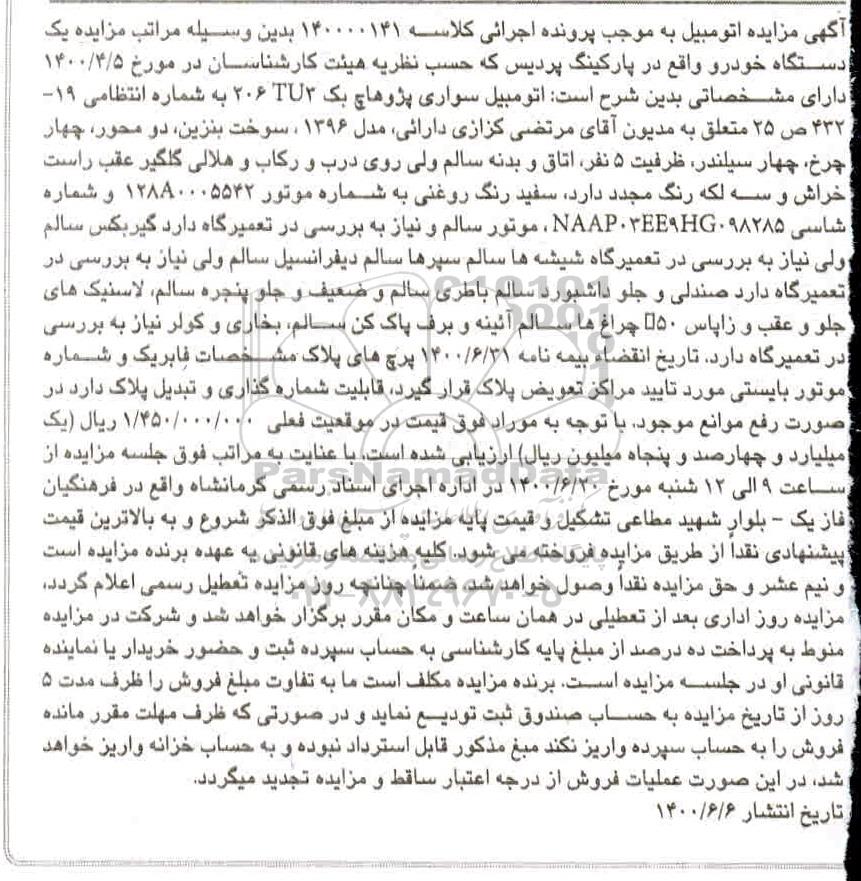 آگهی مزایده اتومبیل به موجب پرونده اجرائی کلاسه ۱۴۰۰۰۰۱۴۱ بدین وسیله مراتب مزایده یک
دستگاه خودرو واقع در پارکینگ پردیس که حسب نظریه هیئت کارشناسان در مورخ ۱۴۰۰/۴/۵
دارای مشخصاتی بدین شرح است: اتومبیل سواری پژوهاچ بک ۲۰۶ TU۳ به شماره انتظامی ۱۹-
۴۳۲ ص ۲۵ متعلق به مدیون آقای مرتضی کزازی دارائی، مدل ۱۳۹۶ ، سوخت بنزین، دو محور، چهار
چرخ، چهار سیلندر، ظرفیت ۵ نفر، اتاق و بدنه سالم ولی روی درب و رکاب و هلالی گلگیر عقب راست
خراش و سه لکه رنگ مجدد دارد، سفید رنگ روغنی به شماره موتور ۱۲۸A۰۰۰۵۵۴۲ و شماره
شاسی NAAP۰۳EE۹HG۰۹۸۲۸۵ ، موتور سالم و نیاز به بررسی در تعمیرگاه دارد گیربکس سالم
ولی نیاز به بررسی در تعمیرگاه شیشه ها سالم سپرها سالم دیفرانسیل سالم ولی نیاز به بررسی در
تعمیرگاه دارد صندلی و جلو داشبورد سالم باطری سالم و ضعیف و جلو پنجره سالم، لاستیک های
جلو و عقب و زاپاس ۵۰ چراغ ها سالم آئینه و برف پاک کن سالم، بخاری و کولر نیاز به بررسی
در تعمیرگاه دارد. تاریخ انقضاء بیمه نامه ۱۴۰۰/۶/۳۱ پرچ های پلاک مشخصات فابریک و شماره
موتور بایستی مورد تایید مراکز تعویض پلاک قرار گیرد، قابلیت شماره گذاری و تبدیل پلاک دارد در
صورت رفع موانع موجود. با توجه به موراد فوق قیمت در موقعیت فعلی ۱/۴۵۰/۰۰۰/۰۰۰ ریال (یک
میلیارد و چهارصد و پنجاه میلیون ریال) ارزیابی شده است، با عنایت به مراتب فوق جلسه مزایده از
ساعت ۹ الی ۱۲ شنبه مورخ ۱۴۰۰/۶/۲۰ در اداره اجرای اسناد رسمی کرمانشاه واقع در فرهنگیان
فاز یک - بلوار شهید مطاعی تشکیل و قیمت پایه مزایده از مبلغ فوق الذکر شروع و به بالاترین قیمت
پیشنهادی نقداً از طریق مزایده فروخته می شود. کلیه هزینه های قانونی به عهده برنده مزایده است
و نیم عشر و حق مزایده نقداً وصول خواهد شد. ضمناً چنانچه روز مزایده تعطیل رسمی اعلام گردد،
مزایده روز اداری بعد از تعطیلی در همان ساعت و مکان مقرر برگزار خواهد شد و شرکت در مزایده
منوط به پرداخت ده درصد از مبلغ پایه کارشناسی به حساب سپرده ثبت و حضور خریدار یا نماینده
قانونی او در جلسه مزایده است. برنده مزایده مکلف است ما به تفاوت مبلغ فروش را ظرف مدت ۵
روز از تاریخ مزایده به حساب صندوق ثبت تودیع نماید و در صورتی که ظرف مهلت مقرر مانده
فروش را به حساب سپرده واریز نکند مبغ مذکور قابل استرداد نبوده و به حساب خزانه واریز خواهد
شد، در این صورت عملیات فروش از درجه اعتبار ساقط و مزایده تجدید میگردد.
تاریخ انتشار ۱۴۰۰/۶/۶
ParsNamadData